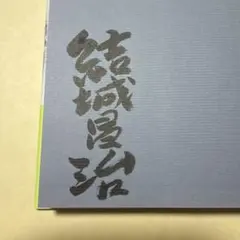 結城昌治